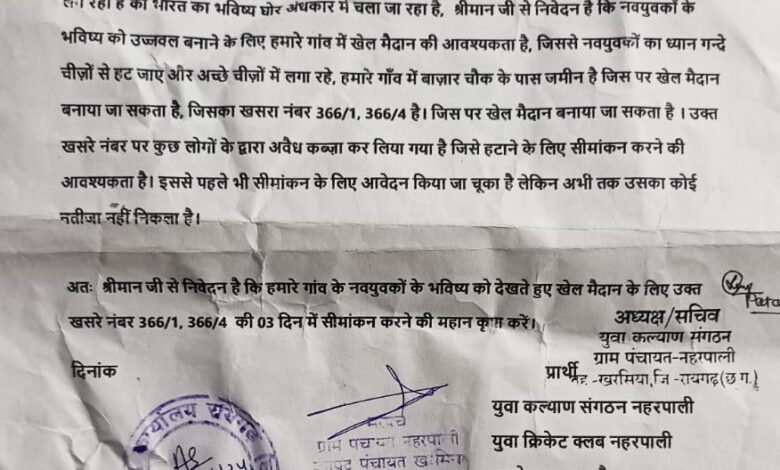 लग रहा है की भारत का भविष्य घोर अंधकार में चला जा रहा है, श्रीमान जी से निवेदन है कि नवयुवकों के
भविष्य को उज्जवल बनाने के लिए हमारे गांव में खेल मैदान की आवश्यकता है, जिससे नवयुवकों का ध्यान गन्दे
चीज़ों से हट जाए और अच्छे चीज़ों में लगा रहे, हमारे गाँव में बाज़ार चौक के पास जमीन है जिस पर खेल मैदान
बनाया जा सकता है, जिसका खसरा नंबर 366/1, 366/4 है। जिस पर खेल मैदान बनाया जा सकता है । उक्त
खसरे नंबर पर कुछ लोगों के द्वारा अवैध कब्ज़ा कर लिया गया है जिसे हटाने के लिए सीमांकन करने की
आवश्यकता है। इससे पहले भी सीमांकन के लिए आवेदन किया जा चूका है लेकिन अभी तक उसका कोई
नतीजा नहीं निकला है।
अतः श्रीमान जी से निवेदन है कि हमारे गांव के नवयुवकों के भविष्य को देखते हुए खेल मैदान के लिए उक्त
खसरे नंबर 366/1, 366/4 की 03 दिन में सीमांकन करने की महान कृपा करें।
अध्यक्ष/सचिव
युवा कल्याण संगठन
ग्राम पंचायत-नहरपाली
दिनांक
प्रार्थी
-खरसिया, जि -रायगढ़ (छ ग.)
युवा कल्याण संगठन नहरपाली
युवा क्रिकेट क्लब नहरपाली
कार्यालय
सरपंच
ग्राम पंचायत नहरपाली
पंचायत खरसिया